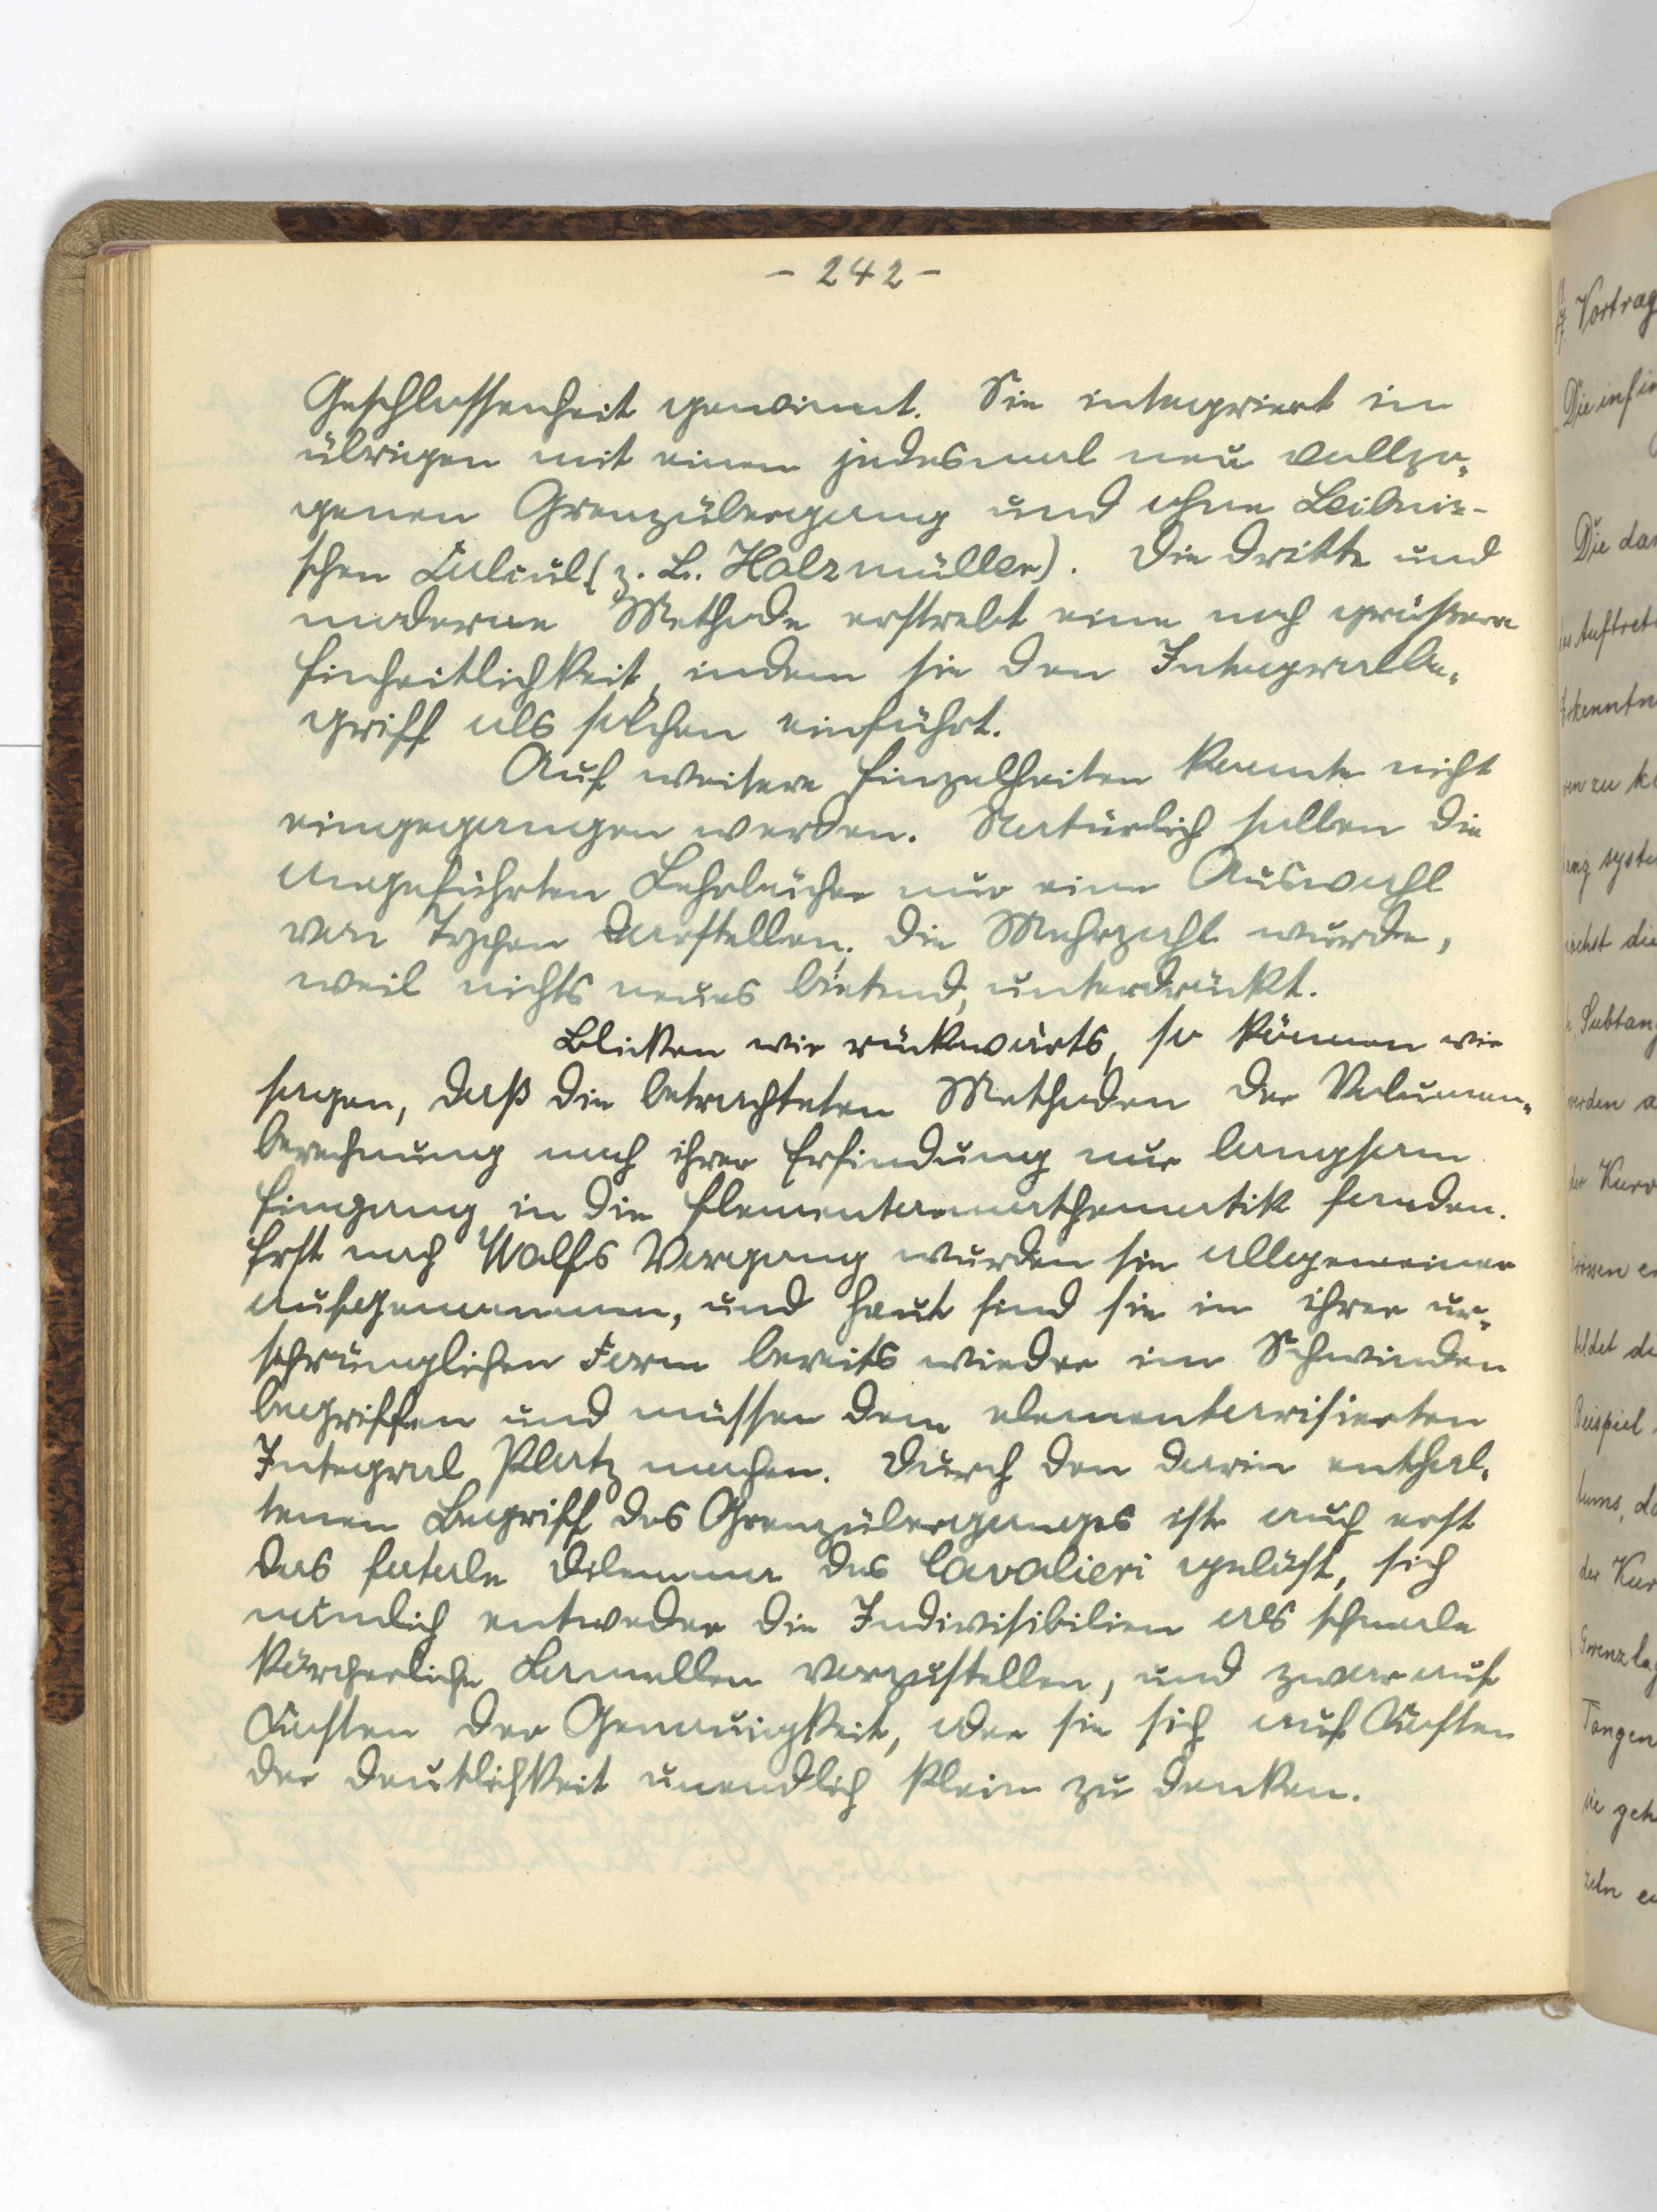 - 242 -
Geschlossenheit gewinnt. Sie integriert im
übrigen mit einem jedesmal neu vollzo-
genen Grenzübergang und ohne Leibniz-
schen Calcul (z. B. Holzmüller). Die dritte und
moderne Methode erstrebt eine noch grössere
Einheitlichkeit, indem sie den Integralbe-
griff als solchen einführt.
Auf weitere Einzelheiten konnte nicht
eingegangen werden. Natürlich sollen die
angeführten Lehrbücher nur eine Auswahl
von Typen darstellen; die Mehrzahl wurde,
weil nichts neues bietend, unterdrückt.
Blicken wir rückwärts, so können wir
sagen, daß die betrachteten Methoden der Volumen-
berechnung nach ihrer Erfindung nur langsam
Eingang in die Elementarmathematik fanden.
Erst nach Wolfs Vorgang wurden sie allgemeiner
aufgenommen, und heut sind sie in ihrer ur-
sprünglichen Form bereits wieder im Schwinden
begriffen und müssen dem elementarisierten
Integral Platz machen. Durch den darin enthal-
tenen Begriff des Grenzüberganges ist auch erst
das fatale Dilemma des Cavalieri gelöst, sich
nämlich entweder die Indivisibilien als schmale
körperliche Lamellen vorzustellen, und zwar auf
Kosten der Genauigkeit, oder sie sich auf Kosten
der Deutlichkeit unendlich klein zu denken.
Vortrag
Die infin
Die dar
Auftret
Erkenntn
en zu k
ang syste
ächst die
Subtan
erden a
der Kurv
rössen e
ildet de
Beispiel
tums, d
der Kur
Grenzlag
Tangen
sie geh
zeln e